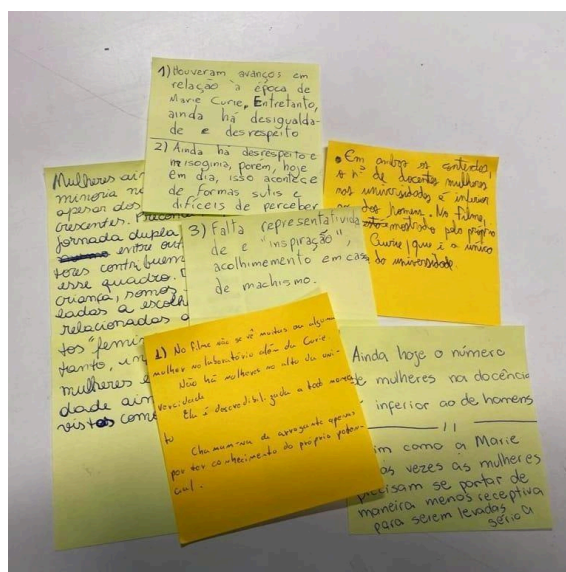 1) Houveram avanços em
relação à época de
Marie Curie, Entretanto,
ainda há desigualda-
de e desrespeito
2) Ainda há desrespeito e
misoginia, porém, hoje
em dia, isso acontece
de formas sutis e
difíceis de perceber
Mulheres ain
minoria n
apesar dos
crescentes.
jornada dupla
entre out
tores contribuem
esse quadro.
criança, somos
ladas a escolh
relacionadas a
tos "femin
tanto, un
mulheres e
dade ain
vistas com
• Em ambos os conteúdos,
o nº de docentes mulheres
nas universidades é inferior
ao dos homem. No filme,
mostrado pelo próprio
Curie, que é a único
da universidade.
3) Falta representativida
de e "inspiração",
acolhimemento em caso
de machismo.
1) No filme não se vê muitas ou alguma
mulher no laboratório além da Curie.
Não há mulheres no alto da uni-
versidade
Ela é descredibilizada a todo momen
to
Chamam-na de arrogante apenas
por ter conhecimento do próprio poten-
cial.
Ainda hoje o número
de mulheres na docência
inferior ao de homens
im como a Marie
as vezes as mulheres
precisam se portar de
maneira menos receptiva
para serem levadas
sério